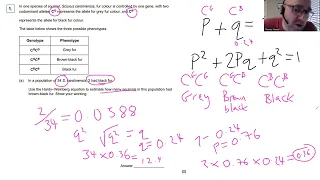 1. In one species of squirrel, Sciurus carolinensis, fur colour is controlled by one gene, with two
codominant alleles. Cᴳ represents the allele for grey fur colour, and Cᴮ
represents the allele for black fur colour.
The table below shows the three possible phenotypes.
Genotype Phenotype
CᴳCᴳ Grey fur
CᴳCᴮ Brown-black fur
CᴮCᴮ Black fur
(a) In a population of 34 S. carolinensis, 2 had black fur.
Use the Hardy–Weinberg equation to estimate how many squirrels in this population had
brown-black fur. Show your working.
Answer
Cᴳ Cᴮ
P + q =
0.24
P² + 2Pq + q² = 1
CᴳCᴳ CᴳCᴮ CᴮCᴮ
Grey Brown Black
black
2/34 = 0.0588
q² √q² = q
q = 0.24
1 - 0.24
P = 0.76
34 × 0.36 =
12.4
2 × 0.76 × 0.24 = 0.36